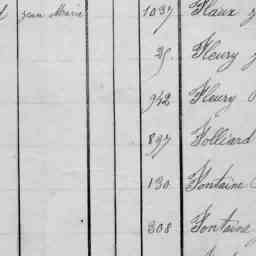 Jean Marie 1037 Flaux
25. Fleury
942 Fleury
897 Folliard
130 Fontaine
308 Fontaine